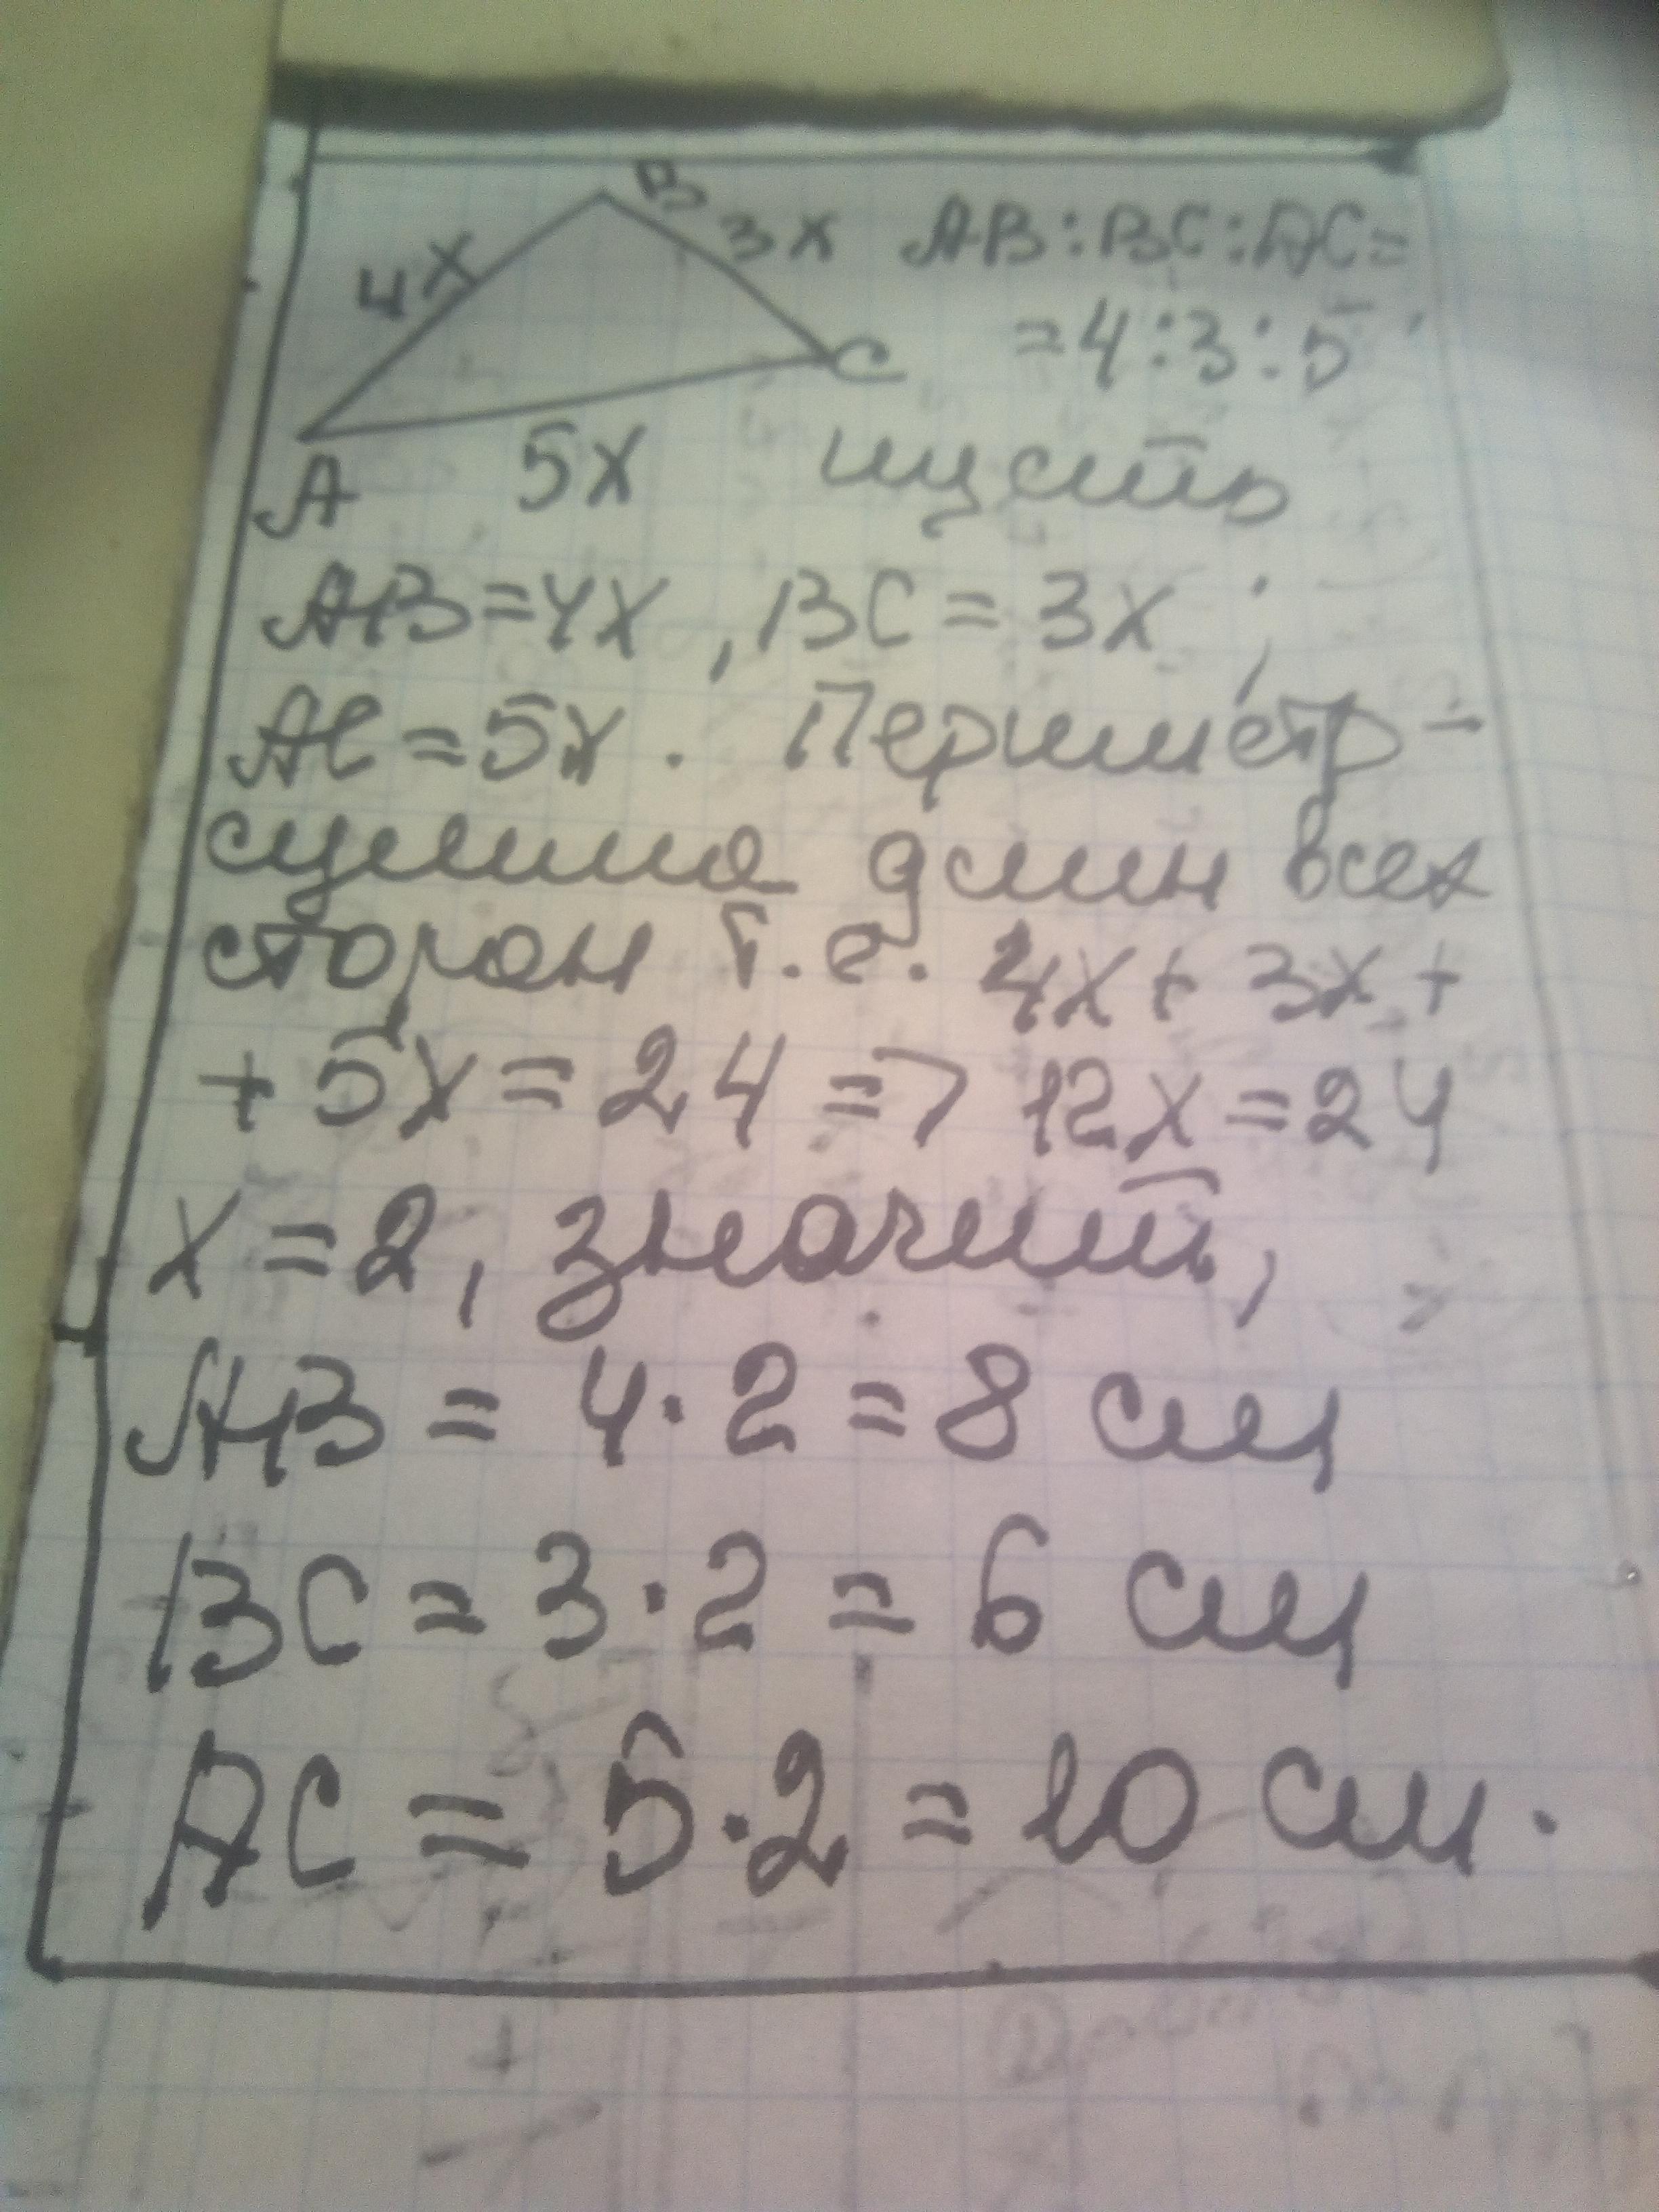 B
4x
3x
AB:BC:AC=
=4:3:5
C
A
5x
пусть
AB=4x, BC=3x;
AC=5x. Периметр-
сумма длин всех
сторон т.е. 4x+3x+
+5x=24=7 12x=24
x=2, значит,
AB=4·2=8 см
BC=3·2=6 см
AC=5·2=10 см.